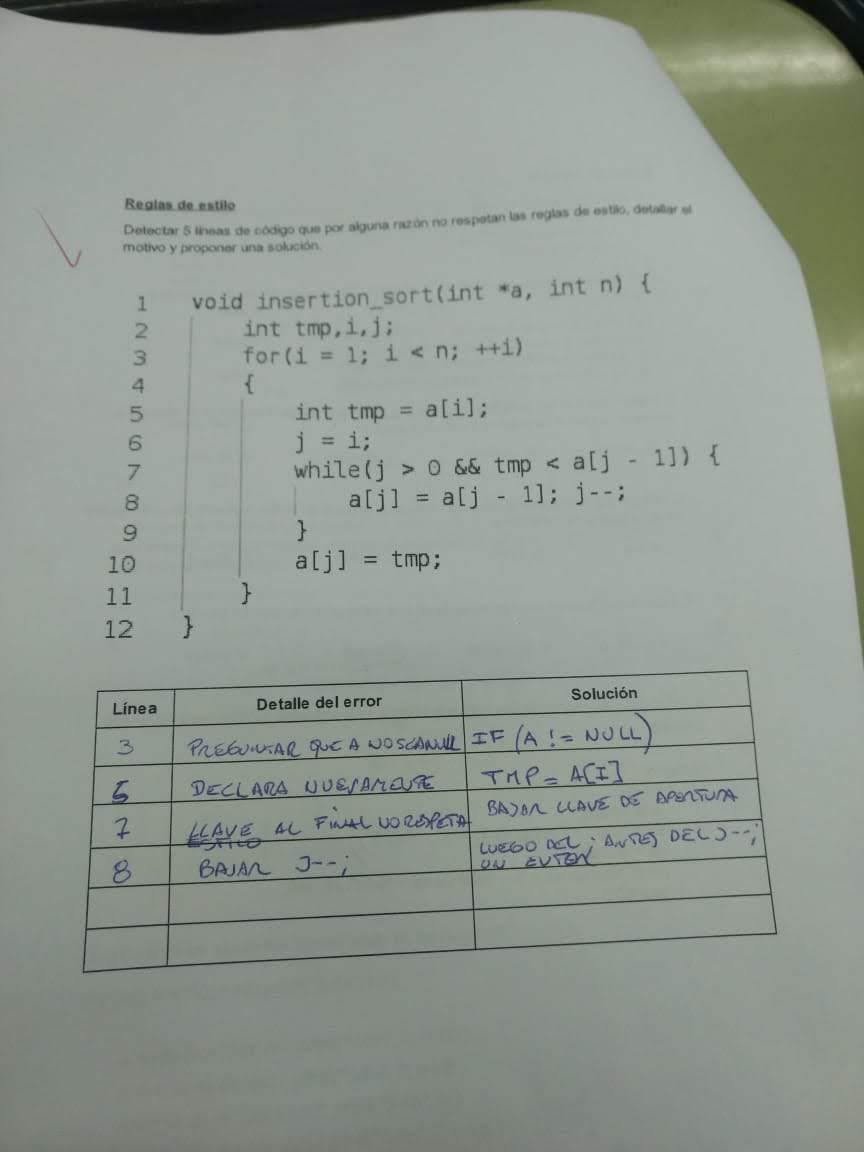 Reglas de estilo
Detectar 5 líneas de código que por alguna razón no respetan las reglas de estilo, detallar el
motivo y proponer una solución.
1 void insertion_sort(int *a, int n) {
2 int tmp,i,j;
3 for(i = 1; i < n; ++i)
4 {
5 int tmp = a[i];
6 j = i;
7 while(j > 0 && tmp < a[j - 1]) {
8 a[j] = a[j - 1]; j--;
9 }
10 a[j] = tmp;
11 }
12 }
Línea Detalle del error Solución
3 PREGUNTAR QUE A NO SEA NULL IF (A != NULL)
5 DECLARA NUEVAMENTE TMP = A[I]
7 LLAVE AL FINAL NO RESPETA BAJAR LLAVE DE APERTURA
ESTILO
8 BAJAR J--; LUEGO DEL ; ANTES DEL J--;
UN ENTER